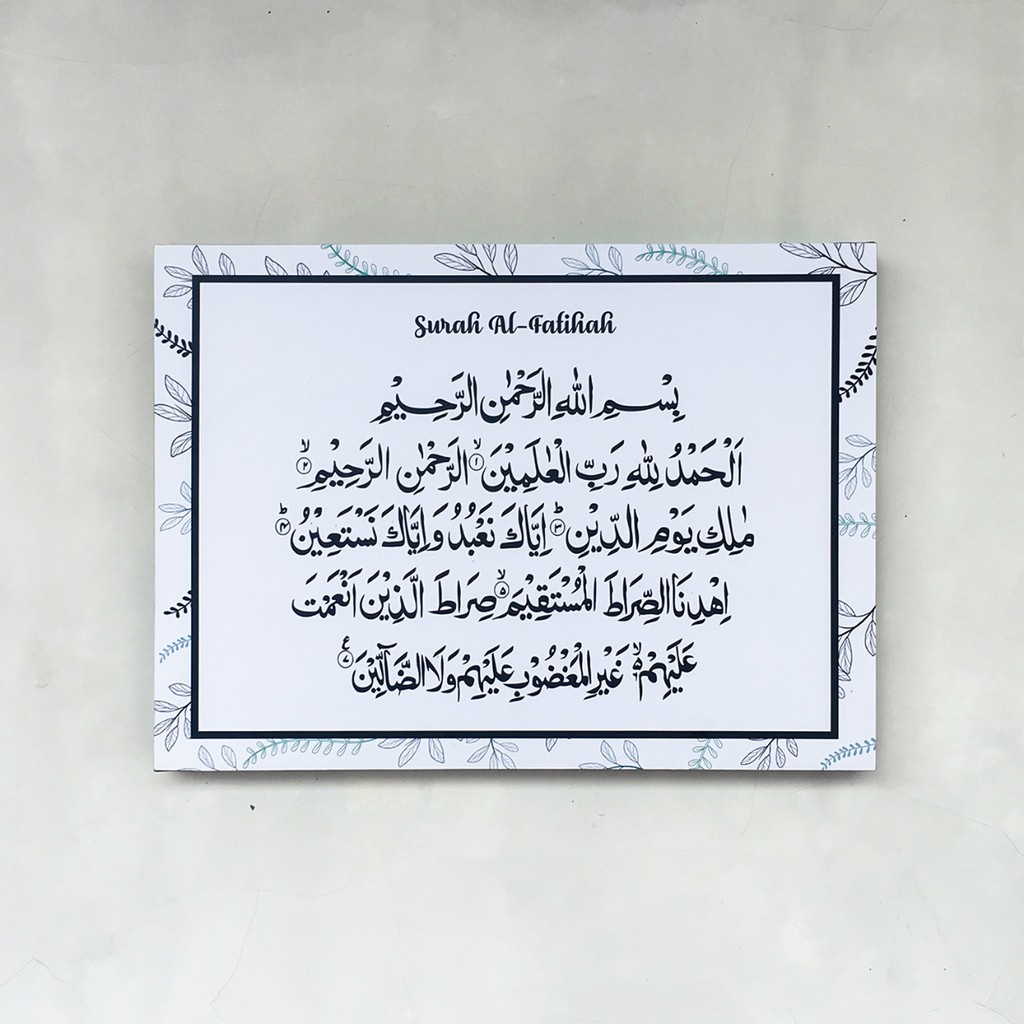 Surah Al-Fatihah
بِسْمِ اللّٰهِ الرَّحْمٰنِ الرَّحِيْمِ
اَلْحَمْدُ لِلّٰهِ رَبِّ الْعٰلَمِيْنَ ۙ۝۱ الرَّحْمٰنِ الرَّحِيْمِ ۙ۝۲
مٰلِكِ يَوْمِ الدِّيْنِ ۗ۝۳ اِيَّاكَ نَعْبُدُ وَاِيَّاكَ نَسْتَعِيْنُ ۗ۝۴
اِهْدِنَا الصِّرَاطَ الْمُسْتَقِيْمَ ۙ۝۵ صِرَاطَ الَّذِيْنَ اَنْعَمْتَ
عَلَيْهِمْ ۙ۝۶ غَيْرِ الْمَغْضُوْبِ عَلَيْهِمْ وَلَا الضَّاۤلِّيْنَ ࣖ۝۷